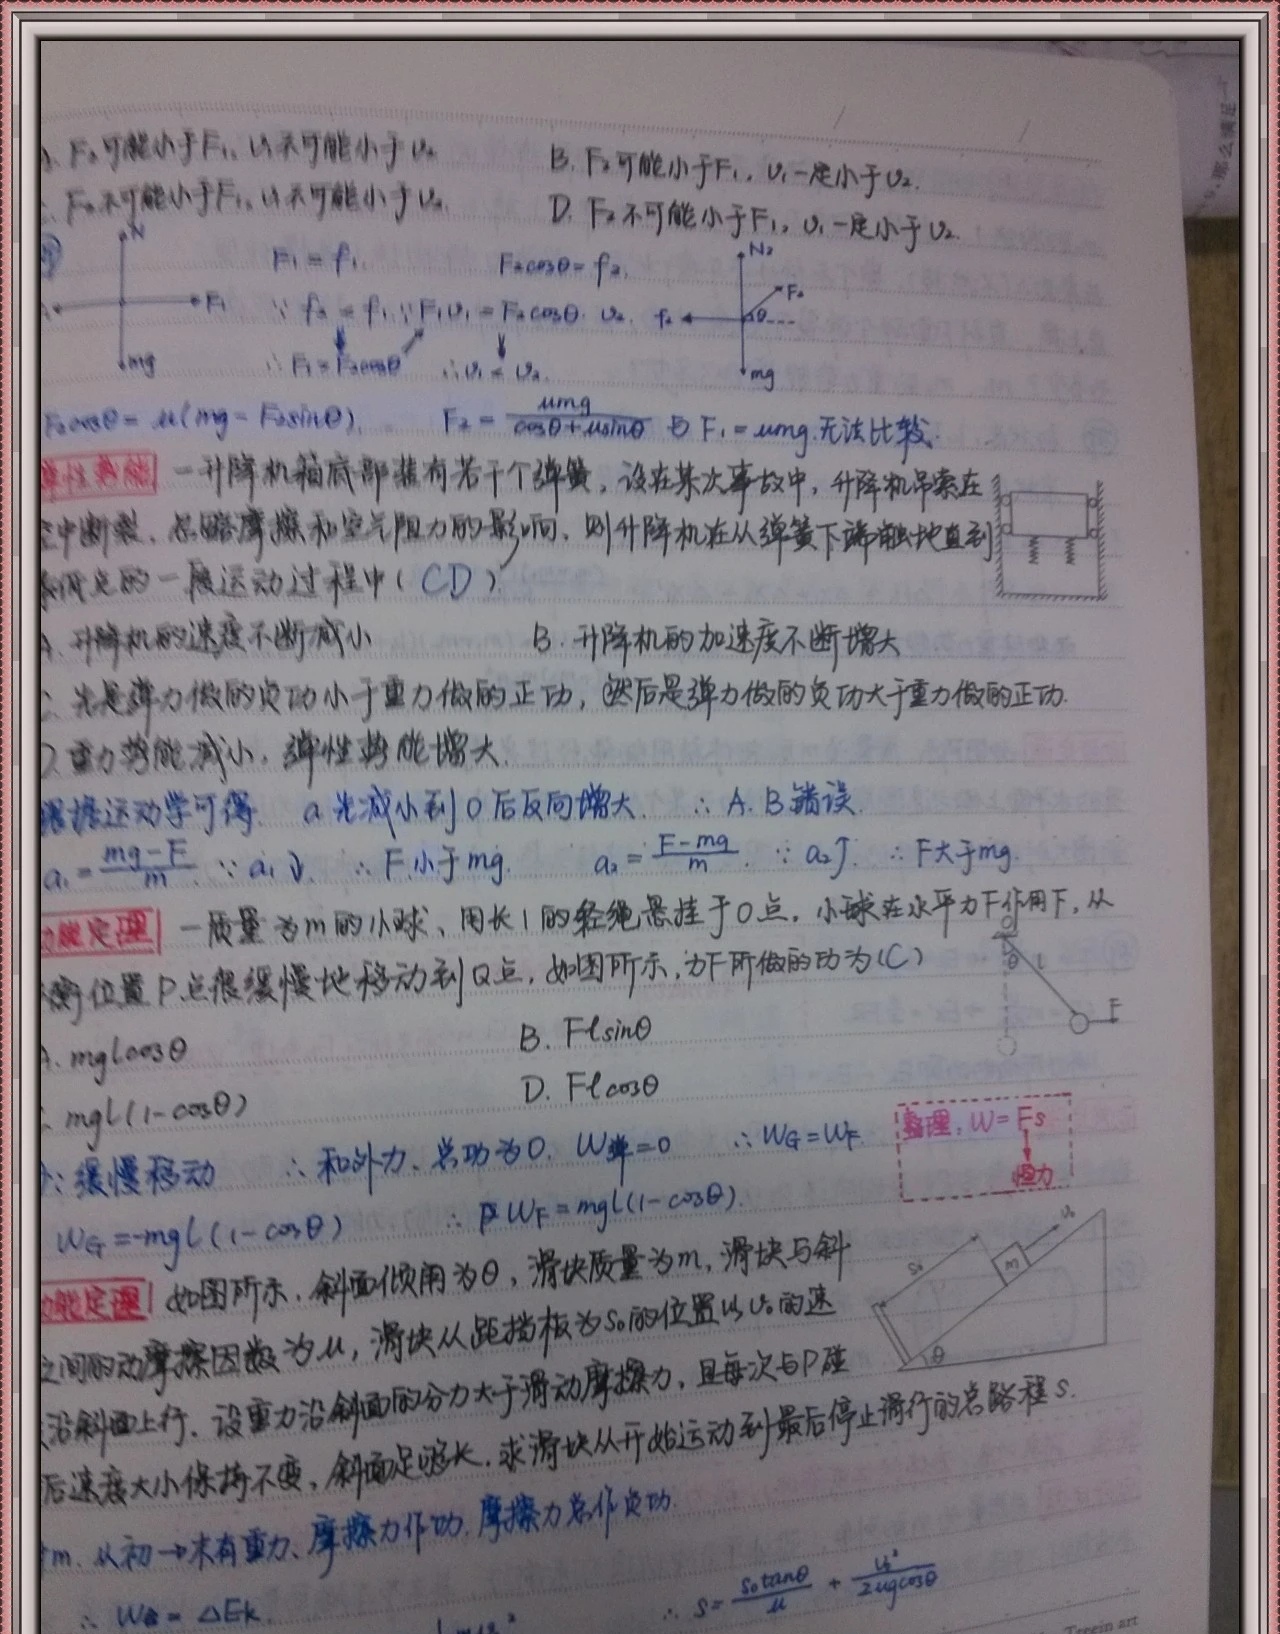 F₂可能小于F₁, υ₁不可能小于υ₂ B. F₂可能小于F₁, υ₁一定小于υ₂.
F₂不可能小于F₁, υ₁不可能小于υ₂. D. F₂不可能小于F₁, υ₁一定小于υ₂.
N F₁ mg
F₁ = f₁. F₂cosθ = f₂. N₂ F₂ f₂ θ mg
∵ f₂ = f₁ ∵ F₁υ₁ = F₂cosθ · υ₂.
∴ F₁ = F₂cosθ ∴ υ₁ = υ₂.
F₂cosθ = μ(mg - F₂sinθ). F₂ = μmg/(cosθ+μsinθ) 与 F₁ = μmg 无法比较.
弹性势能 一升降机箱底部装有若干个弹簧, 设在某次事故中, 升降机吊索在
空中断裂, 忽略摩擦和空气阻力的影响, 则升降机在从弹簧下端触地直到
最低点的一段运动过程中( CD ).
A. 升降机的速度不断减小 B. 升降机的加速度不断增大
C. 先是弹力做的负功小于重力做的正功, 然后是弹力做的负功大于重力做的正功.
D. 重力势能减小, 弹性势能增大.
根据运动学可得. a先减小到0后反向增大. ∴ A.B.错误.
a₁ = (mg-F)/m. ∵ a₁↓. ∴ F小于mg. a₂ = (F-mg)/m. ∵ a₂↑. ∴ F大于mg.
动能定理 一质量为m的小球, 用长l的轻绳悬挂于O点, 小球在水平力F作用下, 从
平衡位置P点很缓慢地移动到Q点, 如图所示, 力F所做的功为(C)
O θ l F
A. mglcosθ B. Flsinθ
C. mgl(1-cosθ) D. Flcosθ
∵缓慢移动 ∴ 和外力、总功为0. W弹=0 ∴ WG=WF.
整理: W=Fs
恒力
WG = -mgl(1-cosθ) ∴ WF = mgl(1-cosθ).
动能定理 如图所示, 斜面倾角为θ, 滑块质量为m, 滑块与斜
之间的动摩擦因数为μ, 滑块从距挡板为s₀的位置以υ₀的速
s₀ m υ₀ θ
沿斜面上行. 设重力沿斜面的分力大于滑动摩擦力, 且每次与P碰
后速度大小保持不变, 斜面足够长. 求滑块从开始运动到最后停止滑行的总路程s.
m. 从初→末有重力、摩擦力作功. 摩擦力总作负功.
∴ W总 = ΔEk. ∴ s = s₀tanθ/μ + υ₀²/2μgcosθ
Treein art